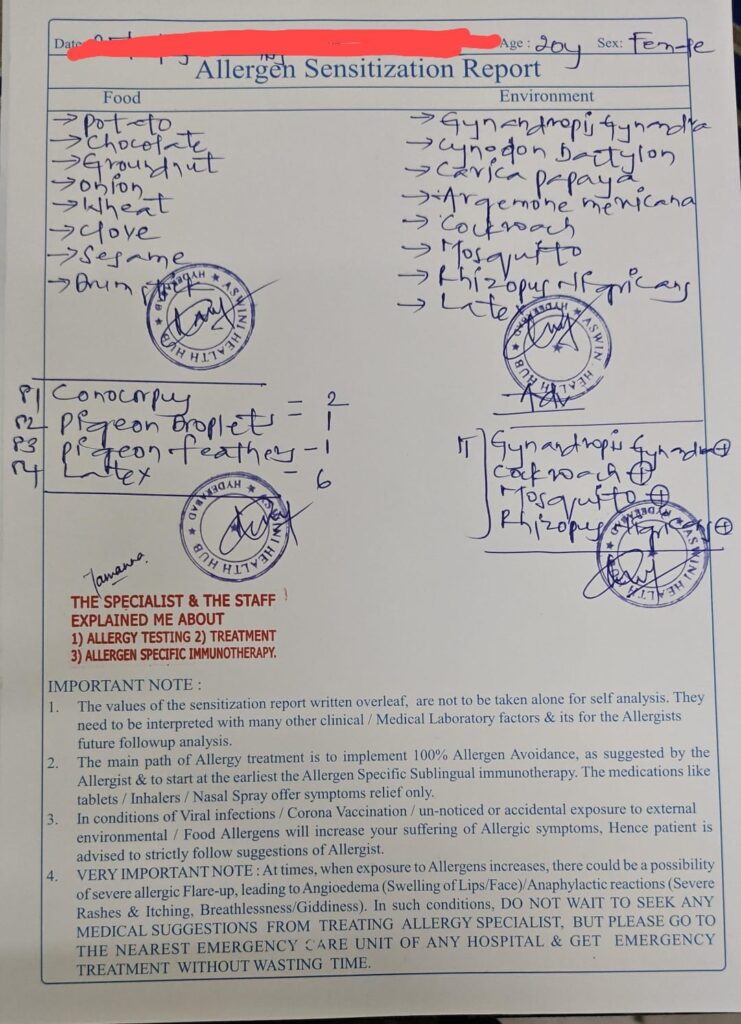 Date
Age : 20y Sex: Female
Allergen Sensitization Report
Food
→ Potato
→ Chocolate
→ Groundnut
→ Onion
→ Wheat
→ Clove
→ Sesame
→ Drumstick
Environment
→ Gynandropis Gynandra
→ Cynodon Dactylon
→ Carica papaya
→ Argemone mexicana
→ Cockroach
→ Mosquito
→ Rhizopus Nigricans
→ Latex
ASWINI HEALTH HUB ★ HYDERABAD ★
ASWINI HEALTH HUB ★ HYDERABAD ★
Adv
P1 Conocorpus = 2
P2 Pigeon Droplets = 1
P3 Pigeon feathers - 1
P4 Latex = 6
IT Gynandropis Gynandra ⊕
Cockroach ⊕
Mosquito ⊕
Rhizopus Nigricans ⊕
ASWINI HEALTH HUB ★ HYDERABAD ★
ASWINI HEALTH HUB ★ HYDERABAD ★
Tamanna
THE SPECIALIST & THE STAFF
EXPLAINED ME ABOUT
1) ALLERGY TESTING 2) TREATMENT
3) ALLERGEN SPECIFIC IMMUNOTHERAPY.
IMPORTANT NOTE :
1. The values of the sensitization report written overleaf, are not to be taken alone for self analysis. They
need to be interpreted with many other clinical / Medical Laboratory factors & its for the Allergists
future followup analysis.
2. The main path of Allergy treatment is to implement 100% Allergen Avoidance, as suggested by the
Allergist & to start at the earliest the Allergen Specific Sublingual immunotherapy. The medications like
tablets / Inhalers / Nasal Spray offer symptoms relief only.
3. In conditions of Viral infections / Corona Vaccination / un-noticed or accidental exposure to external
environmental / Food Allergens will increase your suffering of Allergic symptoms, Hence patient is
advised to strictly follow suggestions of Allergist.
4. VERY IMPORTANT NOTE : At times, when exposure to Allergens increases, there could be a possibility
of severe allergic Flare-up, leading to Angioedema (Swelling of Lips/Face)/Anaphylactic reactions (Severe
Rashes & Itching, Breathlessness/Giddiness). In such conditions, DO NOT WAIT TO SEEK ANY
MEDICAL SUGGESTIONS FROM TREATING ALLERGY SPECIALIST, BUT PLEASE GO TO
THE NEAREST EMERGENCY CARE UNIT OF ANY HOSPITAL & GET EMERGENCY
TREATMENT WITHOUT WASTING TIME.